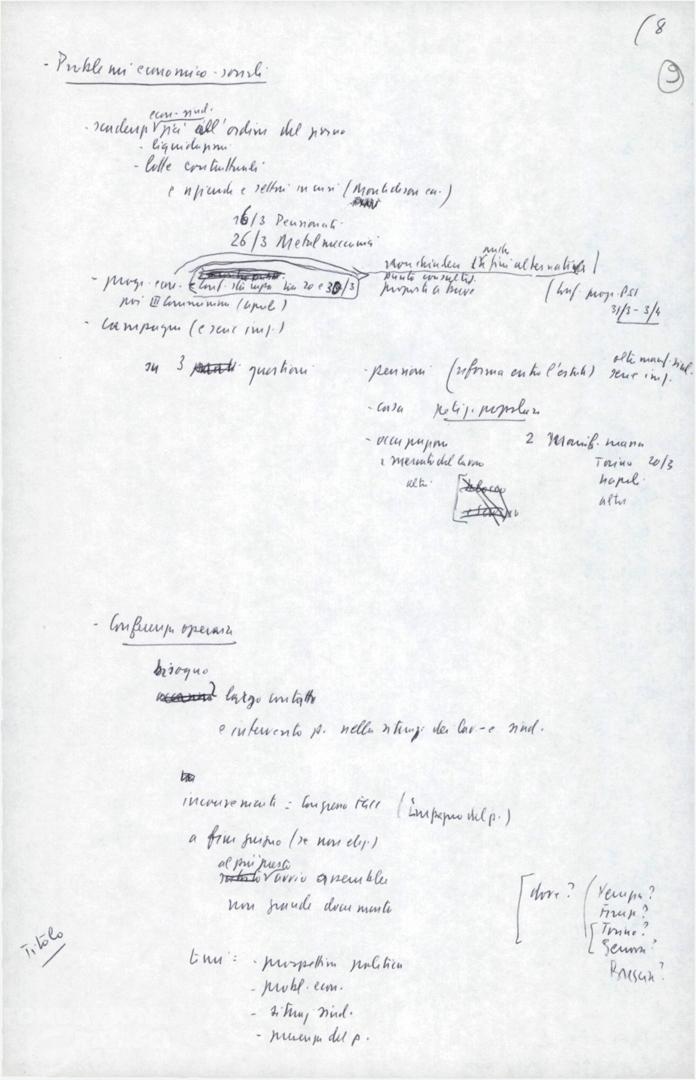 (8
9
- Problemi economico-sociali
econ-sind.
- scadenze più all'ordine del giorno
- liquidazioni
- lotte contrattuali
e aziende e settori in crisi (Montedison ecc.)
16/3 Pensionati
26/3 Metalmeccanici
- prog. econ. e Conf. stampa tra 20 e 30/3
non chiudere anche
proposta a breve
(Conf. progr. PSI
31/3 - 3/4
poi III Commissione (aprile)
- campagne (e serie iniz.)
su 3 questioni
- pensioni (riforma entro l'estate)
altre manif. sind.
serie iniz.
- casa petiz. popolare
- occupazione 2 Manif. massa
e mercato del lavoro Torino 20/3
altri Napoli
altre
- Conferenza operaia
bisogno
largo contatto
e intervento p. nella situaz. dei lav. e sind.
inconvenienti = Congresso FGCI (impegno del p.)
a fine giugno (se non elez.)
al più presto
avvio assemblee
non grande documento
[dove? (Venezia?
Firenze?
Torino?
Genova?
Brescia?
Titolo
temi = - prospettiva politica
- probl. econ.
- situaz. sind.
- presenza del p.